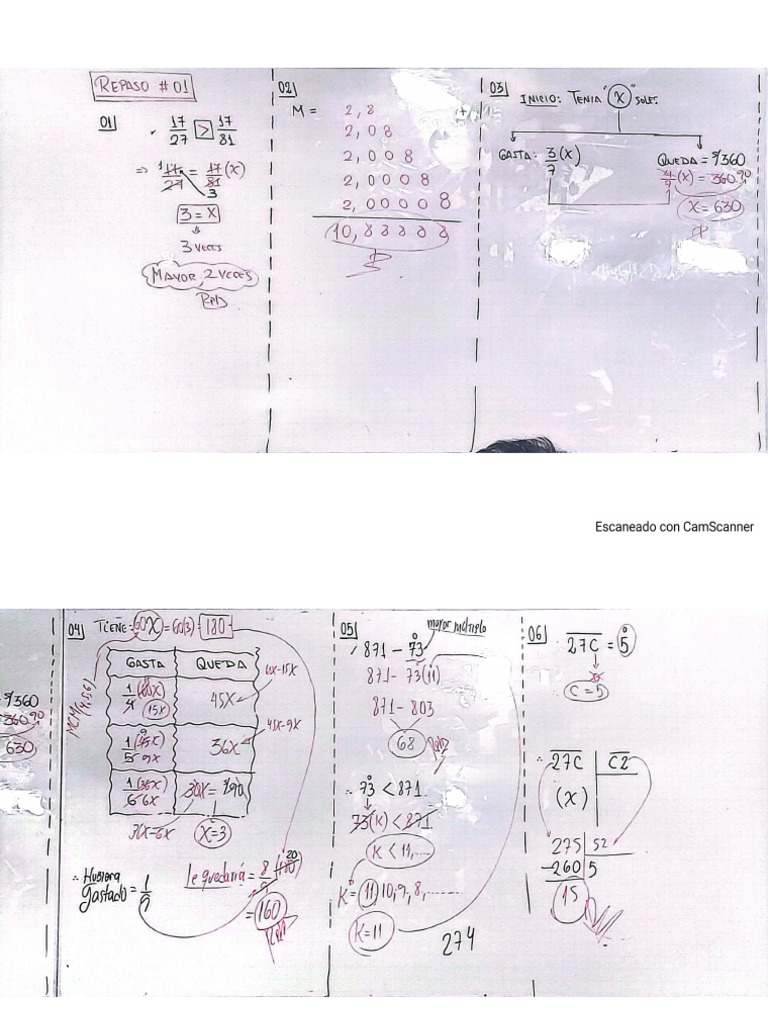 REPASO # 01
01)
17/27 > 17/81
⇒ 17/27 = 17/81 (x)
1
3
3 = x
3 VECES
MAYOR, 2 VECES
Rpta
02)
M =
2,8
2,08
2,008
2,0008
2,00008
10,88888
03) INICIO: TENIA "X" SOLES.
GASTA: 3/7 (x)
QUEDA = S/360
4/7 (x) = 360 90
x = 630
- S/360
360 90
630
04) TIENE = 60X = 60(3) = 180
MCM(4,5,6)
GASTA QUEDA
60x-15x
1/4 (60x) 45x
15x
45x-9x
1/5 (45x) 36x
9
9x
1/6 (36x) 30x = S/90
6x
36x-6x x=3
∴ HUBIERA gastado = 1/9
Le quedaría = 8/9 (180)
20
= 160
Rpta
05)
mayor múltiplo
871 - 73°
871 - 73(11)
871 - 803
68 Rpta
∴ 73° < 871
73(K) < 871
K < 11,...
K = 11, 10, 9, 8, ........
K = 11
274
06)
27C = 5°
C = 5
∴ 27C C2
(x)
275 52
-260 5
15
Escaneado con CamScanner